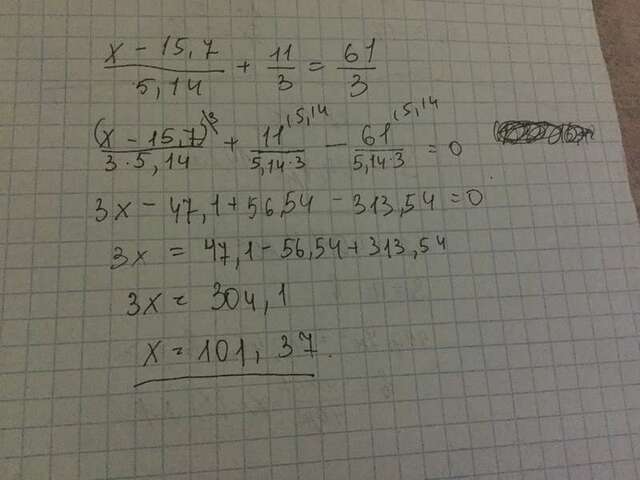 x - 15,7 / 5,14 + 11/3 = 61/3
(x - 15,7)\3 / 3·5,14 + 11\5,14 / 5,14·3 - 61\5,14 / 5,14·3 = 0
3x - 47,1 + 56,54 - 313,54 = 0
3x = 47,1 - 56,54 + 313,54
3x = 304,1
x = 101,37.